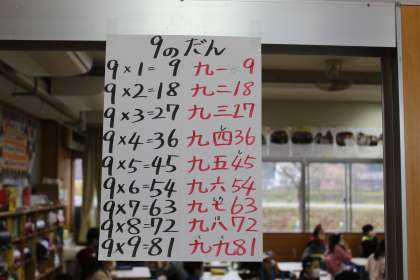 9のだん
9×1=9 九一9
9×2=18 九二18
9×3=27 九三27
9×4=36 九四36
9×5=45 九五45
9×6=54 九六54
9×7=63 九七63
9×8=72 九八72
9×9=81 九九81